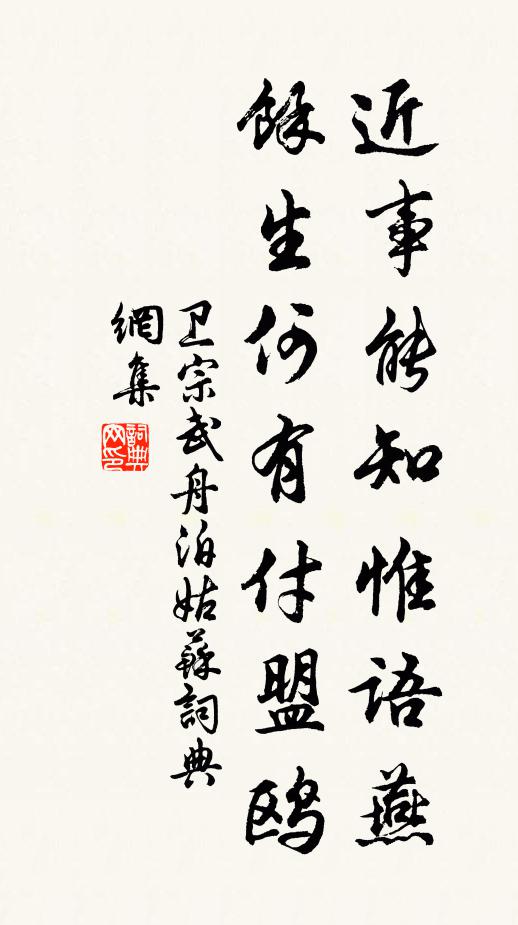 近事能知惟语燕
餘生何有付盟鸥
卫宗武舟泊姑蘇詞典
網集
詞典网印